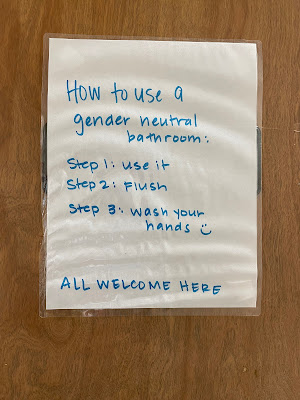 How to use a
gender neutral
bathroom:
Step 1: use it
Step 2: Flush
Step 3: wash your
hands :)
ALL WELCOME HERE